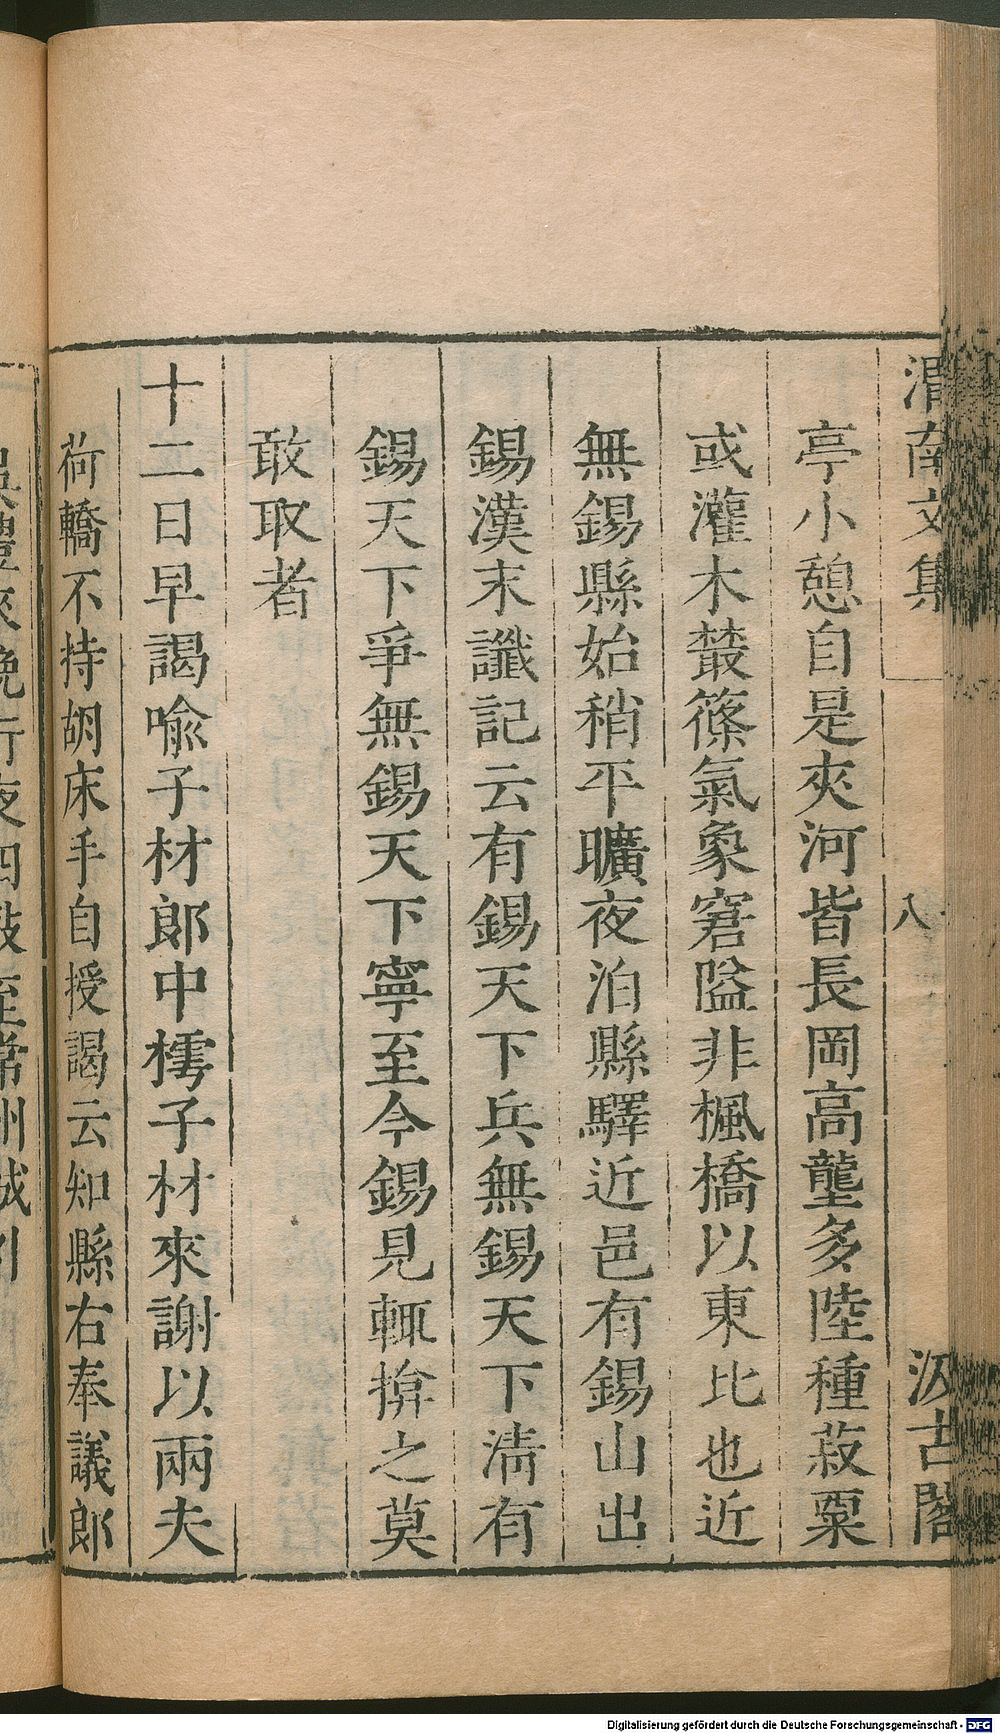 渭南文集 八 汲古閣
亭小憩自是夾河皆長岡高壟多陸種菽粟
或灌木叢篠氣象窘隘非楓橋以東比也近
無錫縣始稍平曠夜泊縣驛近邑有錫山出
錫漢末讖記云有錫天下兵無錫天下淸有
錫天下爭無錫天下寧至今錫見輒揜之莫
敢取者
十二日早謁喻子材郎中樗子材來謝以兩夫
荷轎不持胡床手自授謁云知縣右奉議郎
晚行夜四鼓至常州城外
Digitalisierung gefördert durch die Deutsche Forschungsgemeinschaft - DFG